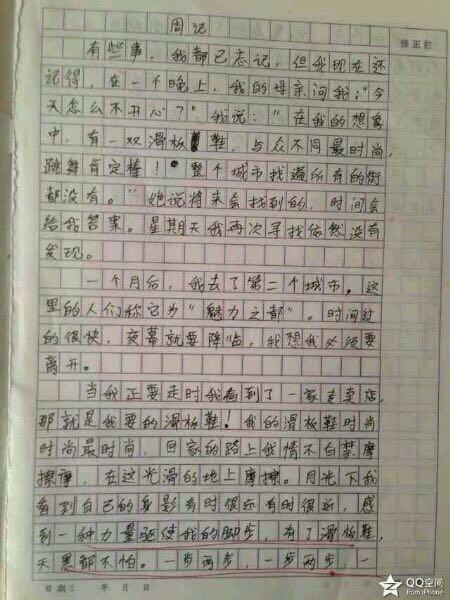 周记
修正栏
有些事，我都已忘记，但我现在还
记得，在一个晚上，我的母亲问我："今
天怎么不开心？"我说："在我的想象
中，有一双滑板鞋，与众不同最时尚，
跳舞肯定棒！整个城市找遍所有的街
都没有。"她说将来会找到的，时间会
给我答案。星期天我再次寻找依然没有
发现。
一个月后，我去了第二个城市。这
里的人们称它为"魅力之都"。时间过
的很快，夜幕就要降临，我想我必须要
离开。
当我正要走时我看到了一家专卖店，
那就是我要的滑板鞋！我的滑板鞋时尚
时尚最时尚，回家的路上我情不自禁摩
擦摩，在这光滑的地上摩擦。月光下我
看到自己的身影有时很远有时很近，感
到一种力量驱使我的脚步，有了滑板鞋，
天黑都不怕。一步两步，一步两步，一
日期： 年 月 日
QQ空间
from iPhone